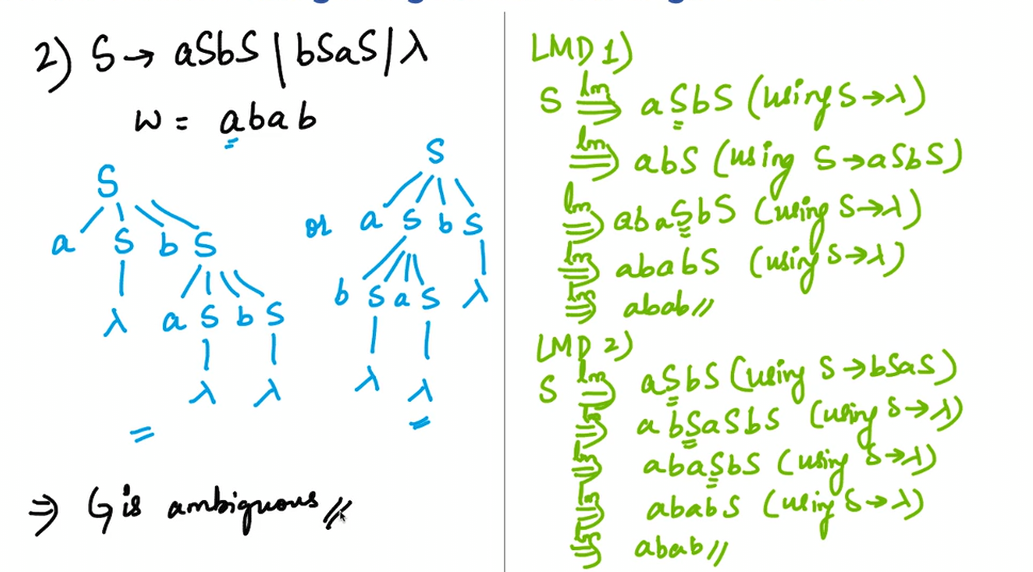 2) S → aSbS | bSaS | λ
w = abab
S
a S b S
λ a S b S
λ λ
or
S
a S b S
b S a S λ
λ λ
⇒ G is ambiguous //
LMD 1)
S lm⇒ aSbS (using S→λ)
lm⇒ abS (using S→aSbS)
lm⇒ abaSbS (using S→λ)
lm⇒ ababS (using S→λ)
lm⇒ abab //
LMD 2)
S lm⇒ aSbS (using S→bSaS)
lm⇒ abSaSbS (using S→λ)
lm⇒ abaSbS (using S→λ)
lm⇒ ababS (using S→λ)
lm⇒ abab //